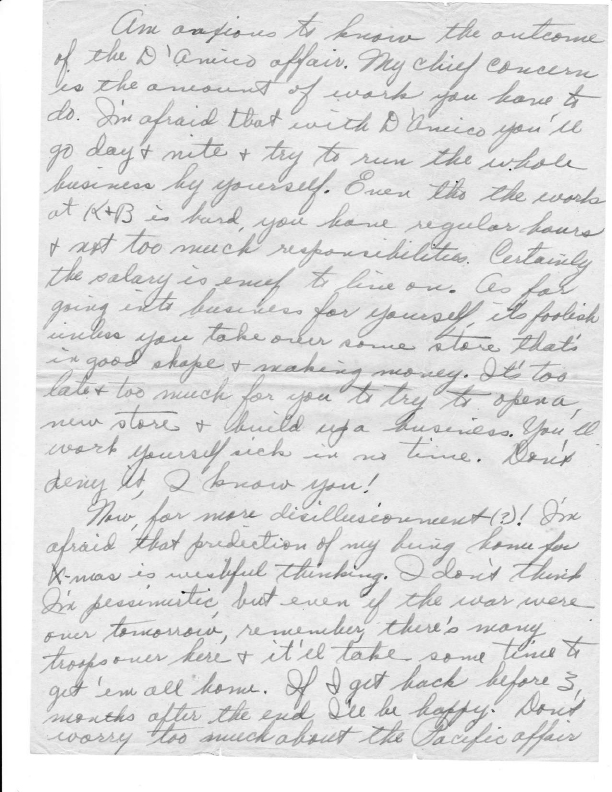 Am anxious to know the outcome
of the D'Amico affair. My chief concern
is the amount of work you have to
do. I'm afraid that with D'Amico you'll
go day & nite & try to run the whole
business by yourself. Even tho the work
at K&B is hard, you have regular hours
& not too much responsibilities. Certainly
the salary is enuf to live on. As far
going into business for yourself, it's foolish
unless you take over some store that's
in good shape & making money. It's too
late & too much for you to try to open a
new store & build up a business. You'll
work yourself sick in no time. Don't
deny it, I know you!
Now, for more disillusionment(?)! I'm
afraid that prediction of my being home for
X-mas is wishful thinking. I don't think
I'm pessimistic, but even if the war were
over tomorrow, remember, there's many
troops over here & it'll take some time to
get 'em all home. If I get back before 3
months after the end I'll be happy. Don't
worry too much about the Pacific affair